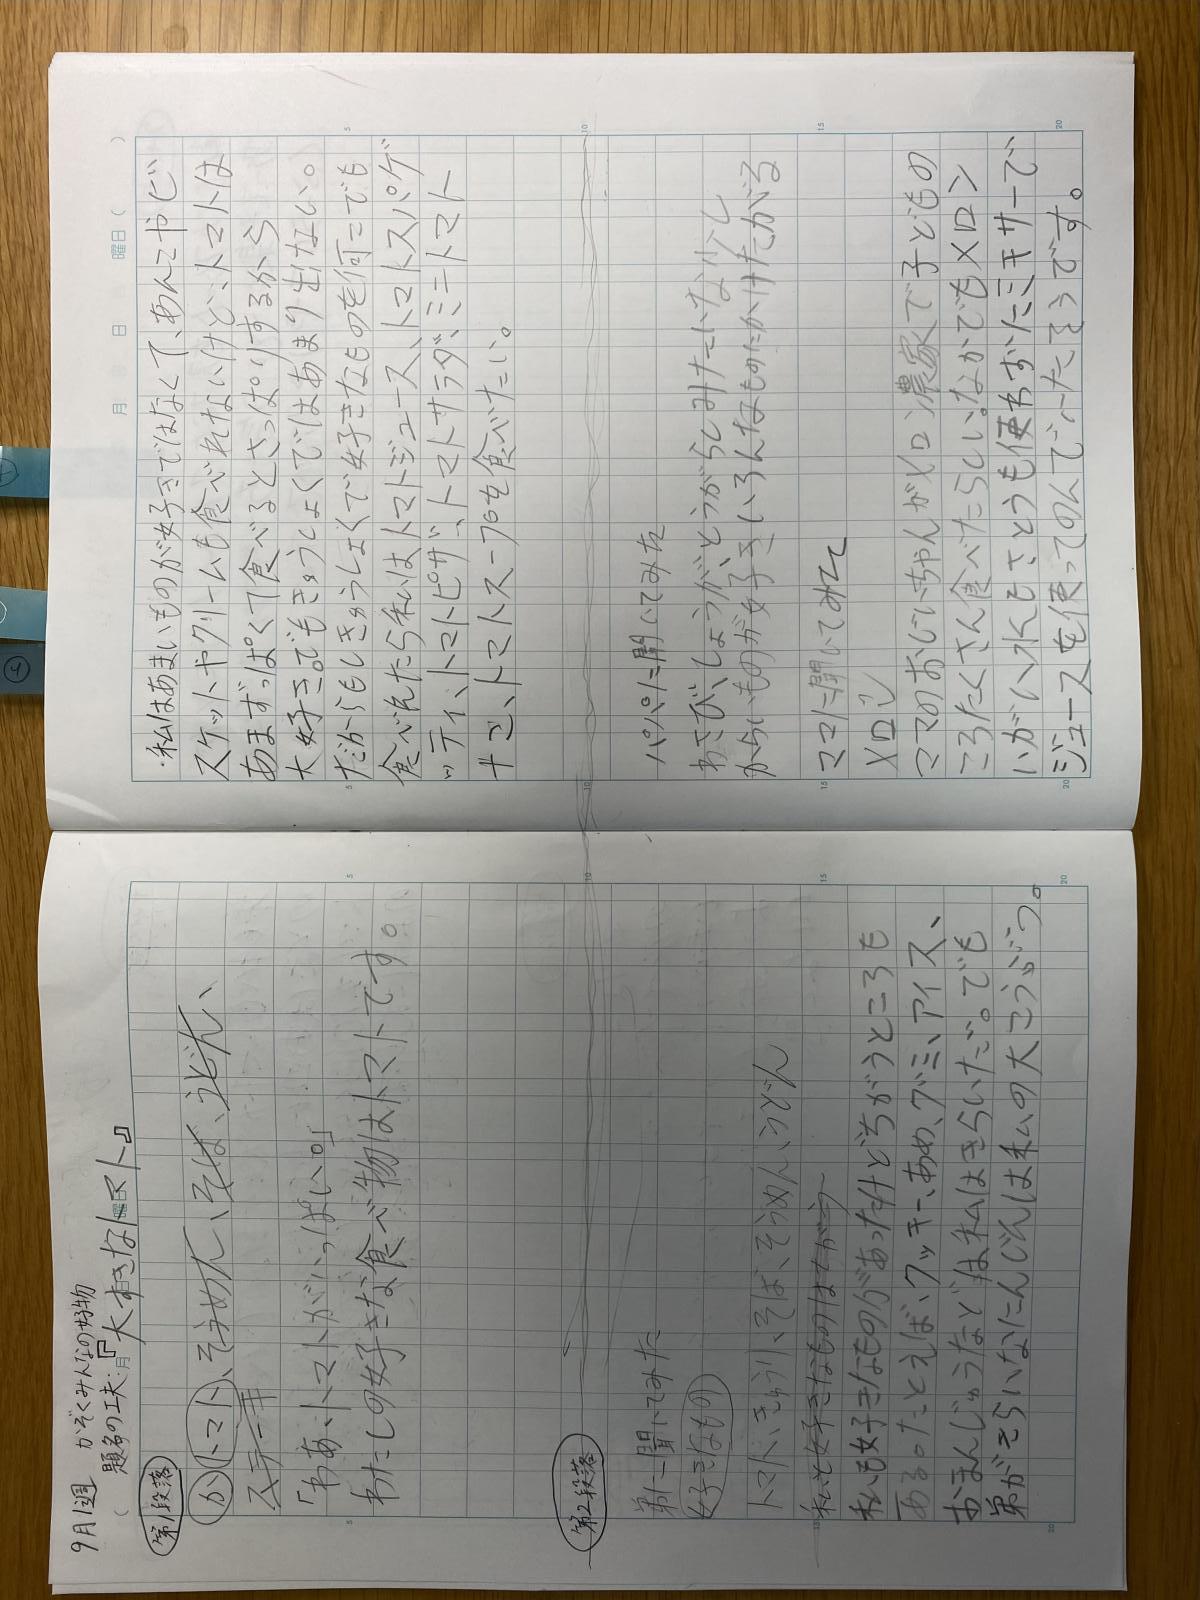 9月1週 かぞくみんなの好物
題名の工夫:『大すきなトマト』
月 日 曜日
第1段落
か トマト、そうめん、そば、うどん、
ステーキ
「わあ、トマトがいっぱい。」
わたしの好きな食べ物はトマトです。
第2段落
弟に聞いてみた
好きなもの
トマト、きゅうり、そば、そうめん、うどん
私も好きなものはちがう
私も好きなものがあったけどちがうところも
ある。たとえば、クッキー、あめ、グミ、アイス、
おまんじゅうなどは私はきらいだ。でも
弟がきらいなにんじんは私の大こうぶつ。
月 日 曜日( )
・私はあまいものが好きではなくて、あんこやビ
スケットやクリームも食べれないけど、トマトは
あまずっぱくて食べるとさっぱりするから
大好き。でもきゅうしょくではあまり出ない。
だからもしきゅうしょくで好きなものを何こでも
食べれたら私はトマトジュース、トマトスパゲ
ッティ、トマトピザ、トマトサラダ、ミニトマト
十こ、トマトスープを食べたい。
パパに聞いてみた
わさび、しょうが、とうがらしみたいな少し
からいものが好き いろんなものにかけたがる
ママに聞いてみて
メロン
ママのおじいちゃんがメロン農家で子どもの
ころたくさん食べたらしい。なかでもメロン
いがい水もさとうも使わずにミキサーで
ジュースを使ってのんでいたそうです。